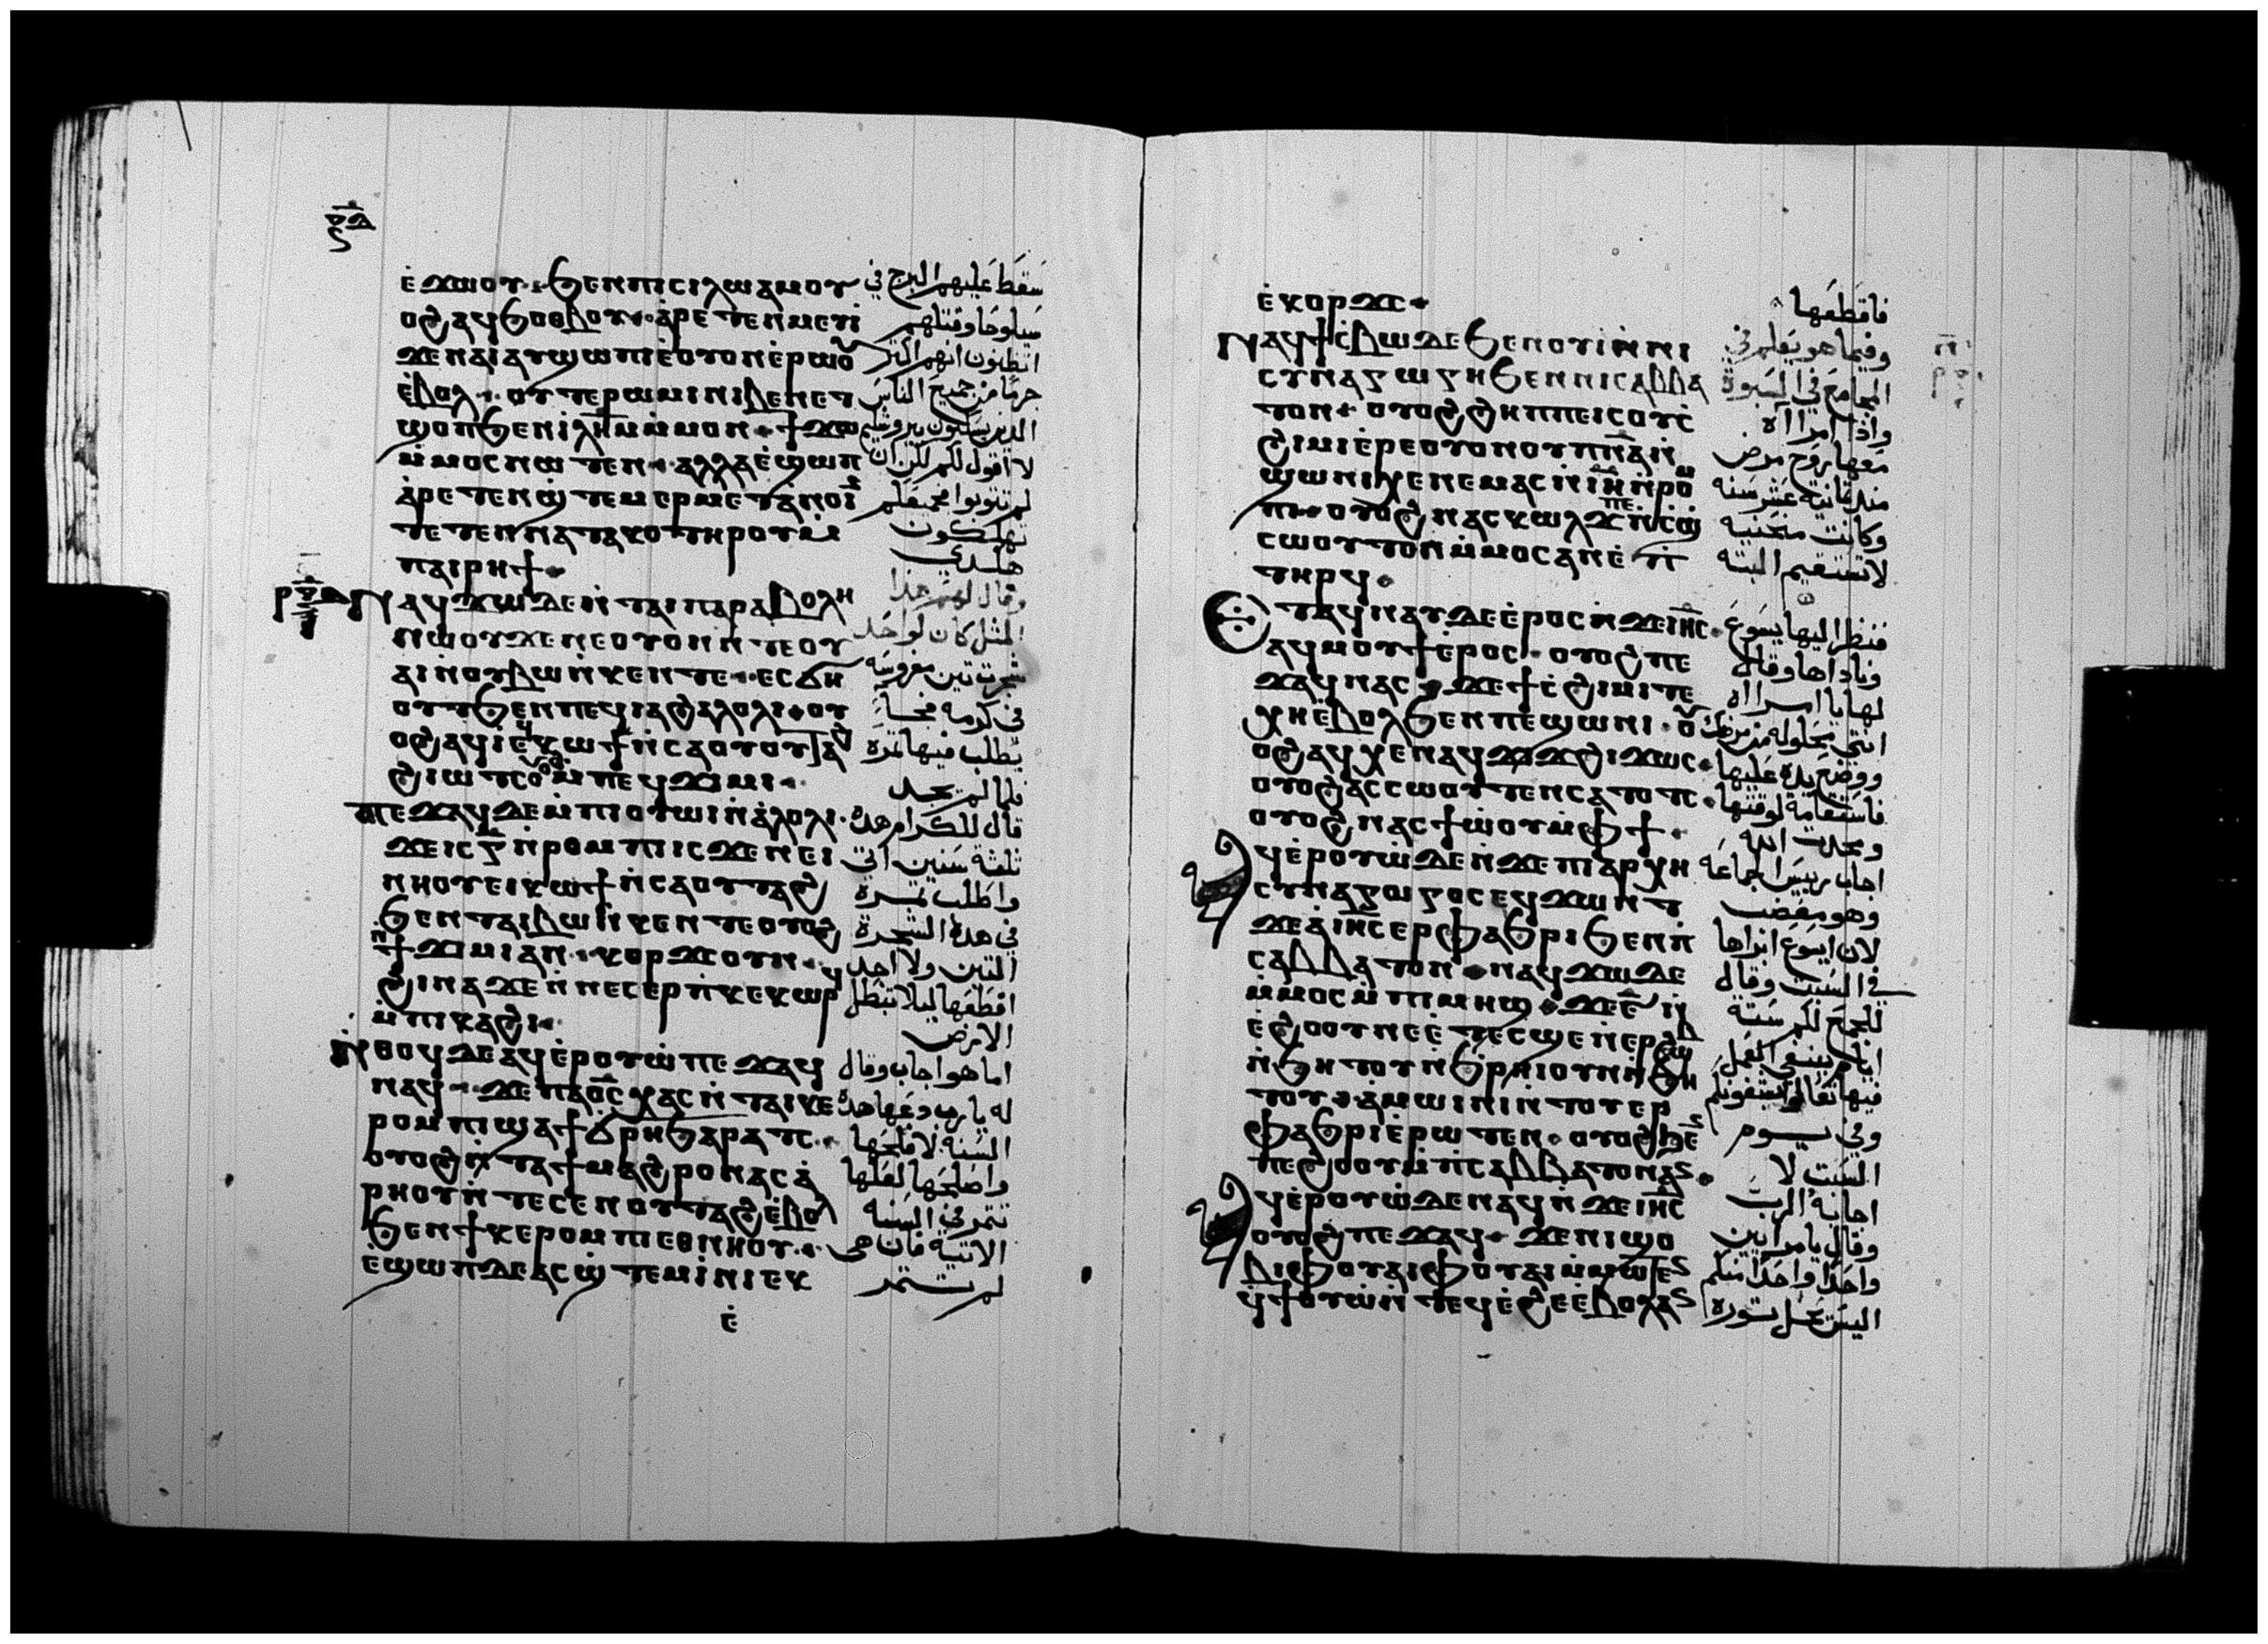 ⲉ̇ϫⲱⲟⲩ ϧⲉⲛⲡⲓⲥⲓⲗⲱⲁⲙⲟⲩ
ⲟϩⲁϥϧⲟⲑⲃⲟⲩ ⲁ̇ⲣⲉⲧⲉⲛⲙⲉⲩⲓ̇
ϫⲉⲛⲁⲓⲁⲩϣⲱⲡⲓⲉ̇ⲟⲩⲟⲛⲉ̇ⲣⲱⲟⲩ
ⲉ̇ⲃⲟⲗ ⲟⲩⲧⲉⲣⲱⲙⲓⲛⲓⲃⲉⲛⲉⲧ
ϣⲟⲡϧⲉⲛⲓ̇ⲗ̅ⲏ̅ⲙ̅ⲙ̇ⲙⲟⲛ ϯϫⲱ
ⲙ̇ⲙⲟⲥⲛⲱⲧⲉⲛ ⲁⲗⲗⲁⲉ̇ϣⲱⲡ
ⲁ̇ⲣⲉⲧⲉⲛϣ̇ⲧⲉⲙⲉⲣⲙⲉⲧⲁⲛⲟⲓ̇
ⲧⲉⲧⲉⲛⲛⲁⲧⲁⲕⲟⲧⲏⲣⲟⲩⲙ̇
ⲡⲁⲓⲣⲏϯ
ⲛⲁϥϫⲱⲇⲉⲛ̇ⲧⲁⲓⲡⲁⲣⲁⲃⲟⲗⲏ
ⲛⲱⲟⲩϫⲉⲛⲉⲟⲩⲟⲛⲛ̇ⲧⲉⲟⲩ
ⲁⲓⲛ̇ⲟⲩⲃⲱⲛ̇ⲕⲉⲛⲧⲉ ⲉⲥϭⲏ
ⲟⲩⲧϧⲉⲛⲡⲉϥⲓⲁϩⲁⲗⲟⲗⲓ ⲟⲩ
ⲟϩⲁϥⲓⲉϥⲕⲱϯⲛ̇ⲥⲁⲟⲩⲟⲩⲧⲁϩ
ϩⲓⲱⲧⲥⲟⲩⲟϩⲙ̇ⲡⲉϥϫⲓⲙⲓ
ⲡⲉϫⲁϥⲇⲉⲙ̇ⲡⲓⲟⲩⲱⲓⲛ̇ⲁ̇ⲗⲟⲗⲓ
ϫⲉⲓⲥⲅ̅ⲛ̇ⲣⲟⲙⲡⲓⲓⲥϫⲉⲛⲉⲓ
ⲛⲏⲟⲩⲉⲓⲕⲱϯⲛ̇ⲥⲁⲟⲩⲧⲁϩ
ϧⲉⲛⲧⲁⲓⲃⲱⲛ̇ⲕⲉⲛⲧⲉⲟⲩⲟϩ
ⲛϯϫⲓⲙⲓⲁⲛ ⲕⲟⲣϫⲥⲟⲩⲛ
ϩⲓⲛⲁϫⲉⲛ̇ⲛⲉⲥⲉⲣⲡⲕⲉⲕⲱⲣϥ
ⲙ̇ⲡⲓⲕⲁϩⲓ
ⲛ̇ⲑⲟϥⲇⲉⲁϥⲉ̇ⲣⲟⲩⲱ̇ⲡⲉϫⲁϥ
ⲛⲁϥ ϫⲉⲡⲁⲟ̅ⲥ̅ⲭⲁⲥⲛ̇ⲧⲁⲓⲕⲉ
ⲣⲟⲙⲡⲓϣⲁϯϭ̇ⲣⲏϧⲁⲣⲁⲧⲥ
ⲟⲩⲟϩⲛ̇ⲧⲁϯⲙⲁϩⲣⲟⲛⲁⲥⲁ̇
ⲣⲏⲟⲩⲛ̇ⲧⲉⲥⲉⲛⲟⲩⲧⲁϩⲉ̇ⲃⲟⲗ
ϧⲉⲛϯⲕⲉⲣⲟⲙⲡⲓⲉⲑⲛⲏⲟⲩ
ⲉ̇ϣⲱⲡⲇⲉⲁⲥϣ̇ⲧⲉⲙⲓ̇ⲛⲓⲉⲕ
ⲉ̇
سقط عليهم البرج في
سيلوحا وقتلهم
اتظنون انهم اكثر
جرما من جميع الناس
الذين يسكنون بيروشليم
لا اقول لكم لكن ان
لم تتوبوا جميعكم
تهلكون
هكذى
وقال لهم هذا
المثل كان لواحد
شجرة تين مغروسة
في كرمه فجا
يطلب فيها ثمرة
فلما لم يجد
قال للكرام هذه
ثلثة سنين اتي
واطلب ثمرة
في هذه الشجرة
التين ولا اجد
اقطعها ليلا تبطل
الارض
اما هو اجاب وقال
له يا رب دعها هذه
السنه لافلحها
واصلحها لعلها
تثمر في السنه
الاتية فان هي
لم تثمر
ⲉ̇ⲕⲟⲣϫⲥ
ⲛⲁϥϯⲥ̇ⲃⲱⲇⲉϧⲉⲛⲟⲩⲓ̇ⲛ̇ⲛⲓ
ⲥⲩⲛⲁⲅⲱⲅⲏϧⲉⲛⲛⲓⲥⲁⲃⲃⲁ
ⲧⲟⲛ ⲟⲩⲟϩϩⲏⲡⲡⲉⲓⲥⲟⲩⲥ̇
ϩⲓⲙⲓⲉ̇ⲣⲉⲟⲩⲟⲛⲟⲩⲡ̅ⲛ̅ⲁ̅ⲛ̇
ϣⲱⲛⲓⲭⲉⲛⲉⲙⲁⲥⲓⲛ̇ⲓ̅ⲏ̅ⲛ̇ⲣⲟⲙ
ⲡⲓ ⲟⲩⲟϩⲛⲁⲥⲕⲱⲗϫⲡⲉⲛ̇ⲥϣ̇
ⲥⲱⲟⲩⲧⲟⲛⲙ̇ⲙⲟⲥⲁⲛⲉ̇ⲡ
ⲧⲏⲣϥ
ⲉⲧⲁϥⲛⲁⲩⲇⲉⲉ̇ⲣⲟⲥⲛ̇ϫⲉⲓ̅ⲏ̅ⲥ̅
ⲁϥⲙⲟⲩϯⲉ̇ⲣⲟⲥ ⲟⲩⲟϩⲡⲉ
ϫⲁϥⲛⲁⲥ ϫⲉϯⲥ̇ϩⲓⲙⲓⲧⲉ
ⲭⲏⲉ̇ⲃⲟⲗϧⲉⲛⲡⲉϣⲱⲛⲓ ⲟⲩ
ⲟϩⲁϥⲭⲉⲛⲁϥϫⲓϫϩⲓϫⲱⲥ
ⲟⲩⲟϩⲁⲥⲥⲱⲟⲩⲧⲉⲛⲥⲁⲧⲟⲧⲥ
ⲟⲩⲟϩⲛⲁⲥϯⲱ̇ⲟⲩⲙ̇ⲫϯ
ⲁϥⲉ̇ⲣⲟⲩⲱ̇ⲇⲉⲛ̇ϫⲉⲡⲓⲁⲣⲭⲏ
ⲥⲩⲛⲁⲅⲱⲅⲟⲥⲉϥϫⲱⲛⲧ
ϫⲉⲁ̇ⲓ̅ⲏ̅ⲥ̅ⲉⲣⲫⲁϧⲣⲓϧⲉⲛⲡ
ⲥⲁⲃⲃⲁⲧⲟⲛ ⲛⲁϥϫⲱⲇⲉ
ⲙ̇ⲙⲟⲥⲙ̇ⲡⲓⲙⲏϣ ϫⲉⲋ̅ⲛ̇
ⲉ̇ϩⲟⲟⲩⲛⲉⲉ̇ⲧⲉⲥϣⲉⲛ̇ⲉⲣϩⲱⲃ
ⲛ̇ϧⲏⲧⲟⲩⲛ̇ϧⲣⲏⲓⲟⲩⲛⲛ̇ϧⲏ
ⲧⲟⲩ ⲁ̇ⲙⲱⲓⲛⲓⲛ̇ⲧⲟⲩⲉⲣ
ⲫⲁϧⲣⲓⲉ̇ⲣⲱⲧⲉⲛ ⲟⲩⲟϩ
ⲡⲉϩⲟⲟⲩⲙ̇ⲡⲥⲁⲃⲃⲁⲧⲟⲛⲁⲛ
ⲁϥⲉ̇ⲣⲟⲩⲱ̇ⲇⲉⲛⲁϥⲛ̇ϫⲉⲓ̅ⲏ̅ⲥ̅
ⲟⲩⲟϩⲡⲉϫⲁϥ ϫⲉⲛⲓϣⲟ
ⲃⲓⲫⲟⲩⲁⲓⲫⲟⲩⲁⲓⲙ̇ⲙⲱⲧⲉⲛ
ϥ̇ϯⲟⲩⲱ̇ⲛ̇ⲧⲉϥⲉ̇ϩⲉⲉ̇ⲃⲟⲗⲁⲛ
فاقطعها
وفيما هو يعلم في
المجامع في السبوة
واذا امراة
معها روح مرض
منذ ثمانية عشر سنه
وكانت منحنية
لا تستقيم البته
فنظر اليها يسوع
وناداها وقال
لها يا امراه
انتي محلوله من مرضك
ووضع يده عليها
فاستقامة لوقتها
ومجدت الله
اجاب رييس الجماعه
وهو مغضب
لان ايسوع ابراها
في السبت وقال
للجمع لكم ستة
ايام ينبغي العمل
فيها تعالوا
وفي يوم
السبت لا
اجابه الرب
وقال يا مرايين
واحدا واحدا منكم
اليس يحل ثوره